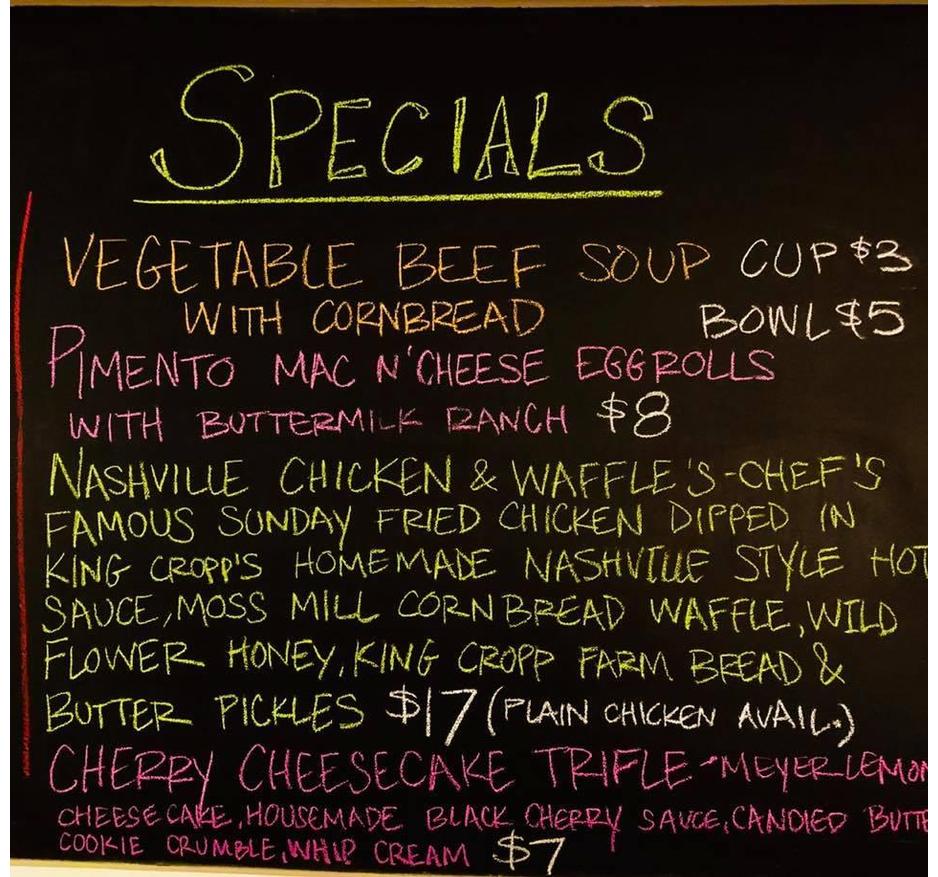 SPECIALS
VEGETABLE BEEF SOUP CUP $3
WITH CORNBREAD BOWL $5
PIMENTO MAC N'CHEESE EGGROLLS
WITH BUTTERMILK RANCH $8
NASHVILLE CHICKEN & WAFFLE'S-CHEF'S
FAMOUS SUNDAY FRIED CHICKEN DIPPED IN
KING CROPP'S HOMEMADE NASHVILLE STYLE HOT
SAUCE, MOSS MILL CORNBREAD WAFFLE, WILD
FLOWER HONEY, KING CROPP FARM BREAD &
BUTTER PICKLES $17 (PLAIN CHICKEN AVAIL.)
CHERRY CHEESECAKE TRIFLE - MEYER LEMON
CHEESE CAKE, HOUSEMADE BLACK CHERRY SAUCE, CANDIED BUTTE
COOKIE CRUMBLE, WHIP CREAM $7